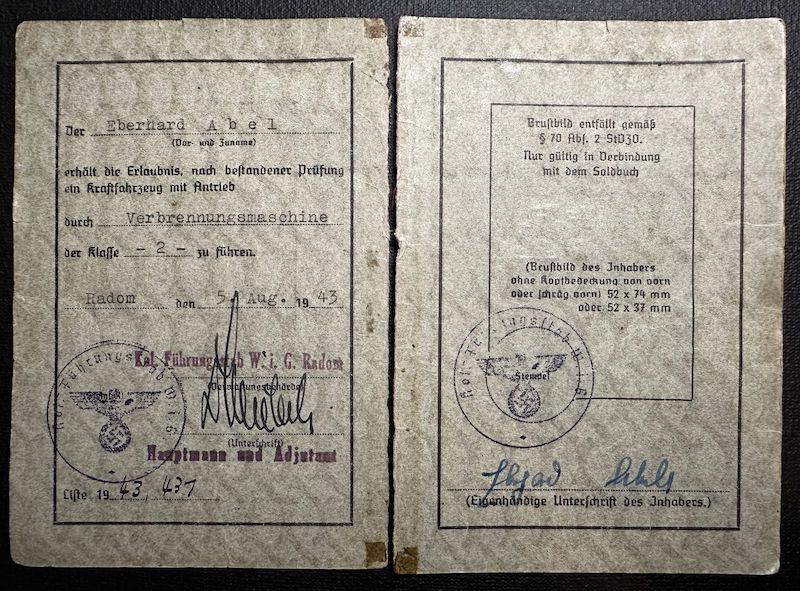 Der Eberhard Abel
(Vor- und Zuname)
erhält die Erlaubnis, nach bestandener Prüfung
ein Kraftfahrzeug mit Antrieb
durch Verbrennungsmaschine
der Klasse - 2 - zu führen.
Radom den 5. Aug. 1943
Kol. Führungsstab W. i. G. Radom
(Verwaltungsbehörde)
Kol. Führungsstab W i G
(Stempel)
(Unterschrift)
Hauptmann und Adjutant
Liste 1943, 437
Brustbild entfällt gemäß
§ 70 Abs. 2 StVZO.
Nur gültig in Verbindung
mit dem Soldbuch
(Brustbild des Inhabers
ohne Kopfbedeckung von vorn
oder schräg vorn) 52 x 74 mm
oder 52 x 37 mm
Kol. Führungsstab W i G
Stempel
(Eigenhändige Unterschrift des Inhabers.)